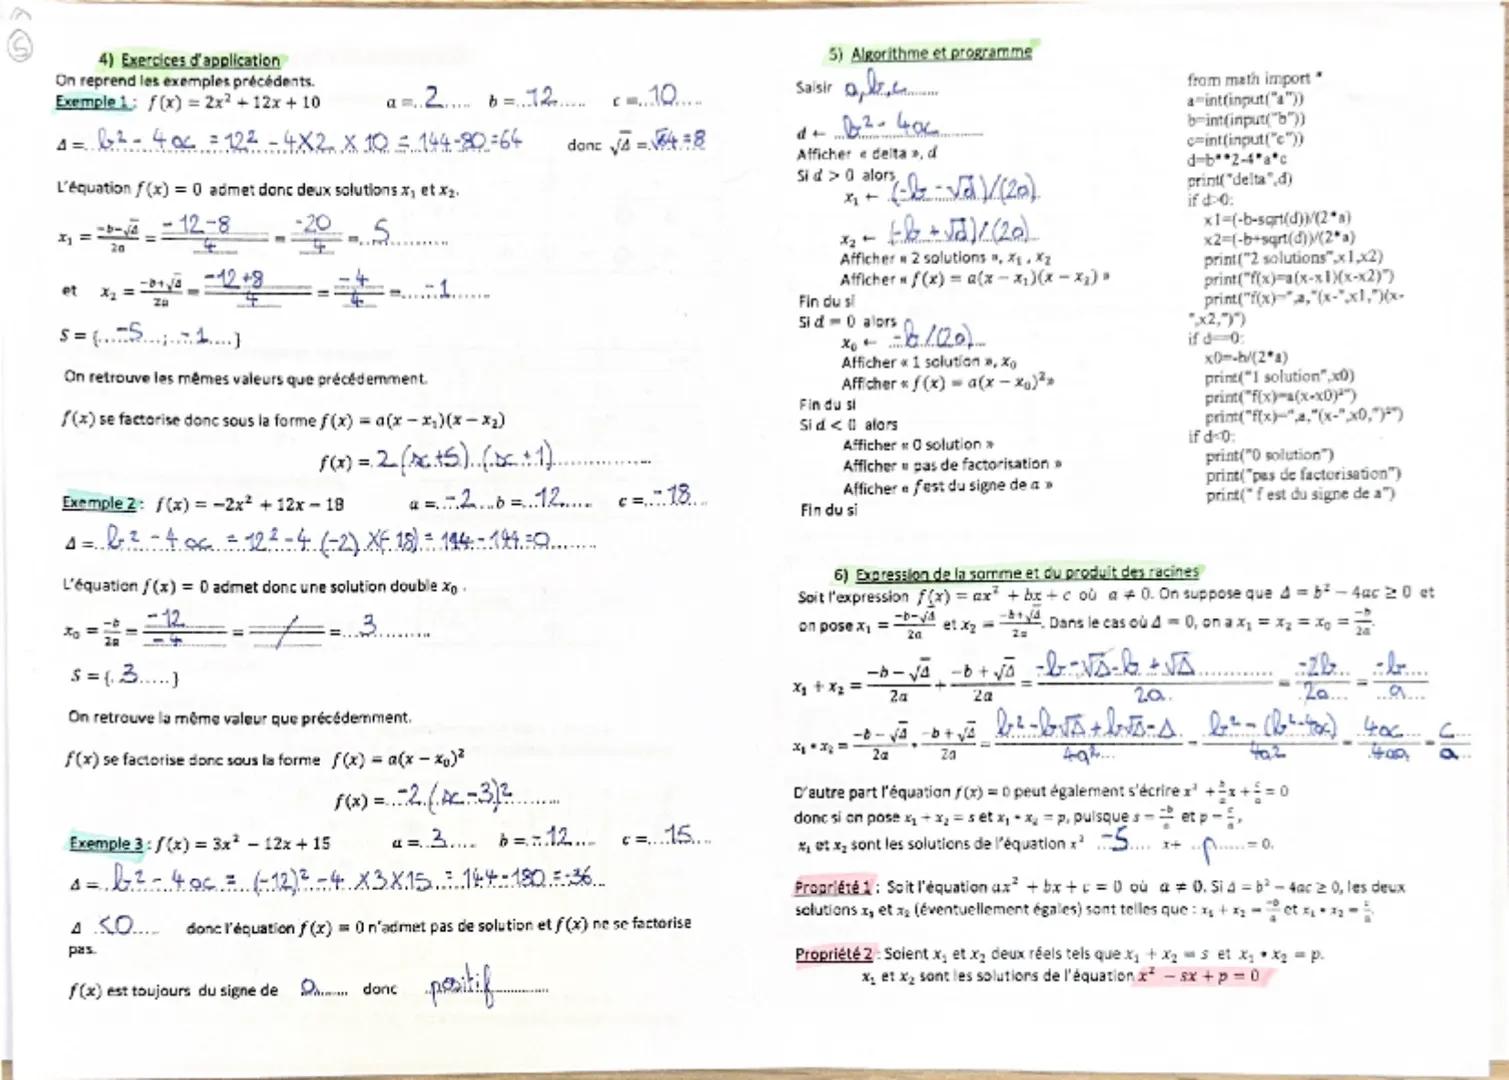 5
4) Exercices d'application
On reprend les exemples précédents.
Exemple 1 : f(x) = 2x² + 12x + 10 a = 2 b = 12 c = 10
Δ = b² - 4ac = 12² - 4×2 × 10 = 144-80=64 donc √Δ = √64 = 8
L'équation f(x) = 0 admet donc deux solutions x₁ et x₂.
x₁ = (-b-√Δ)/2a = (-12-8)/4 = -20/4 = 5
et x₂ = (-b+√Δ)/2a = (-12+8)/4 = -4/4 = -1
S = {-5 ; -1}
On retrouve les mêmes valeurs que précédemment.
f(x) se factorise donc sous la forme f(x) = a(x - x₁)(x - x₂)
f(x) = 2(x+5)(x+1)
Exemple 2 : f(x) = -2x² + 12x - 18 a = -2 b = 12 c = -18
Δ = b² - 4ac = 12² - 4(-2)×(-18) = 144-144=0
L'équation f(x) = 0 admet donc une solution double x₀.
x₀ = -b/2a = -12/-4 = / = 3
S = {3}
On retrouve la même valeur que précédemment.
f(x) se factorise donc sous la forme f(x) = a(x - x₀)²
f(x) = -2(x-3)²
Exemple 3 : f(x) = 3x² - 12x + 15 a = 3 b = -12 c = 15
Δ = b² - 4ac = (-12)² - 4 ×3×15 = 144-180 = -36
Δ <0 donc l'équation f(x) = 0 n'admet pas de solution et f(x) ne se factorise
pas.
f(x) est toujours du signe de a donc positif
5) Algorithme et programme
Saisir a,b,c
d ← b² - 4ac
Afficher « delta », d
Si d > 0 alors
x₁ ← (-b-√d)/(2a)
x₂ ← (-b+√d)/(2a)
Afficher « 2 solutions », x₁, x₂
Afficher « f(x) = a(x - x₁)(x - x₂) »
Fin du si
Si d = 0 alors
x₀ ← -b/(2a)
Afficher « 1 solution », x₀
Afficher « f(x) = a(x - x₀)² »
Fin du si
Si d < 0 alors
Afficher « 0 solution »
Afficher « pas de factorisation »
Afficher « f est du signe de a »
Fin du si
from math import *
a=int(input("a"))
b=int(input("b"))
c=int(input("c"))
d=b**2-4*a*c
print("delta",d)
if d>0:
x1=(-b-sqrt(d))/(2*a)
x2=(-b+sqrt(d))/(2*a)
print("2 solutions",x1,x2)
print("f(x)=a(x-x1)(x-x2)")
print("f(x)=",a,"(x-",x1,")(x-
",x2,")")
if d==0:
x0=-b/(2*a)
print("1 solution",x0)
print("f(x)=a(x-x0)²")
print("f(x)=",a,"(x-",x0,")²")
if d<0:
print("0 solution")
print("pas de factorisation")
print(" f est du signe de a")
6) Expression de la somme et du produit des racines
Soit l'expression f(x) = ax² + bx + c où a ≠ 0. On suppose que Δ = b² - 4ac ≥ 0 et
on pose x₁ = (-b-√Δ)/2a et x₂ = (-b+√Δ)/2a. Dans le cas où Δ = 0, on a x₁ = x₂ = x₀ = -b/2a.
x₁ + x₂ = (-b-√Δ)/2a + (-b+√Δ)/2a = (-b-√Δ-b+√Δ)/2a = -2b/2a = -b/a
x₁ • x₂ = (-b-√Δ)/2a • (-b+√Δ)/2a = (b²-b√Δ+b√Δ-Δ)/4a² = (b²-(b²-4ac))/4a² = 4ac/4aa = c/a
D'autre part l'équation f(x) = 0 peut également s'écrire x² + b/a x + c/a = 0
donc si on pose x₁ + x₂ = s et x₁ • x₂ = p, puisque s = -b/a et p = c/a,
x₁ et x₂ sont les solutions de l'équation x² -S x + p = 0.
Propriété 1 : Soit l'équation ax² + bx + c = 0 où a ≠ 0. Si Δ = b² - 4ac ≥ 0, les deux
solutions x₁ et x₂ (éventuellement égales) sont telles que : x₁ + x₂ = -b/a et x₁ • x₂ = c/a.
Propriété 2 : Soient x₁ et x₂ deux réels tels que x₁ + x₂ = s et x₁ • x₂ = p.
x₁ et x₂ sont les solutions de l'équation x² - sx + p = 0